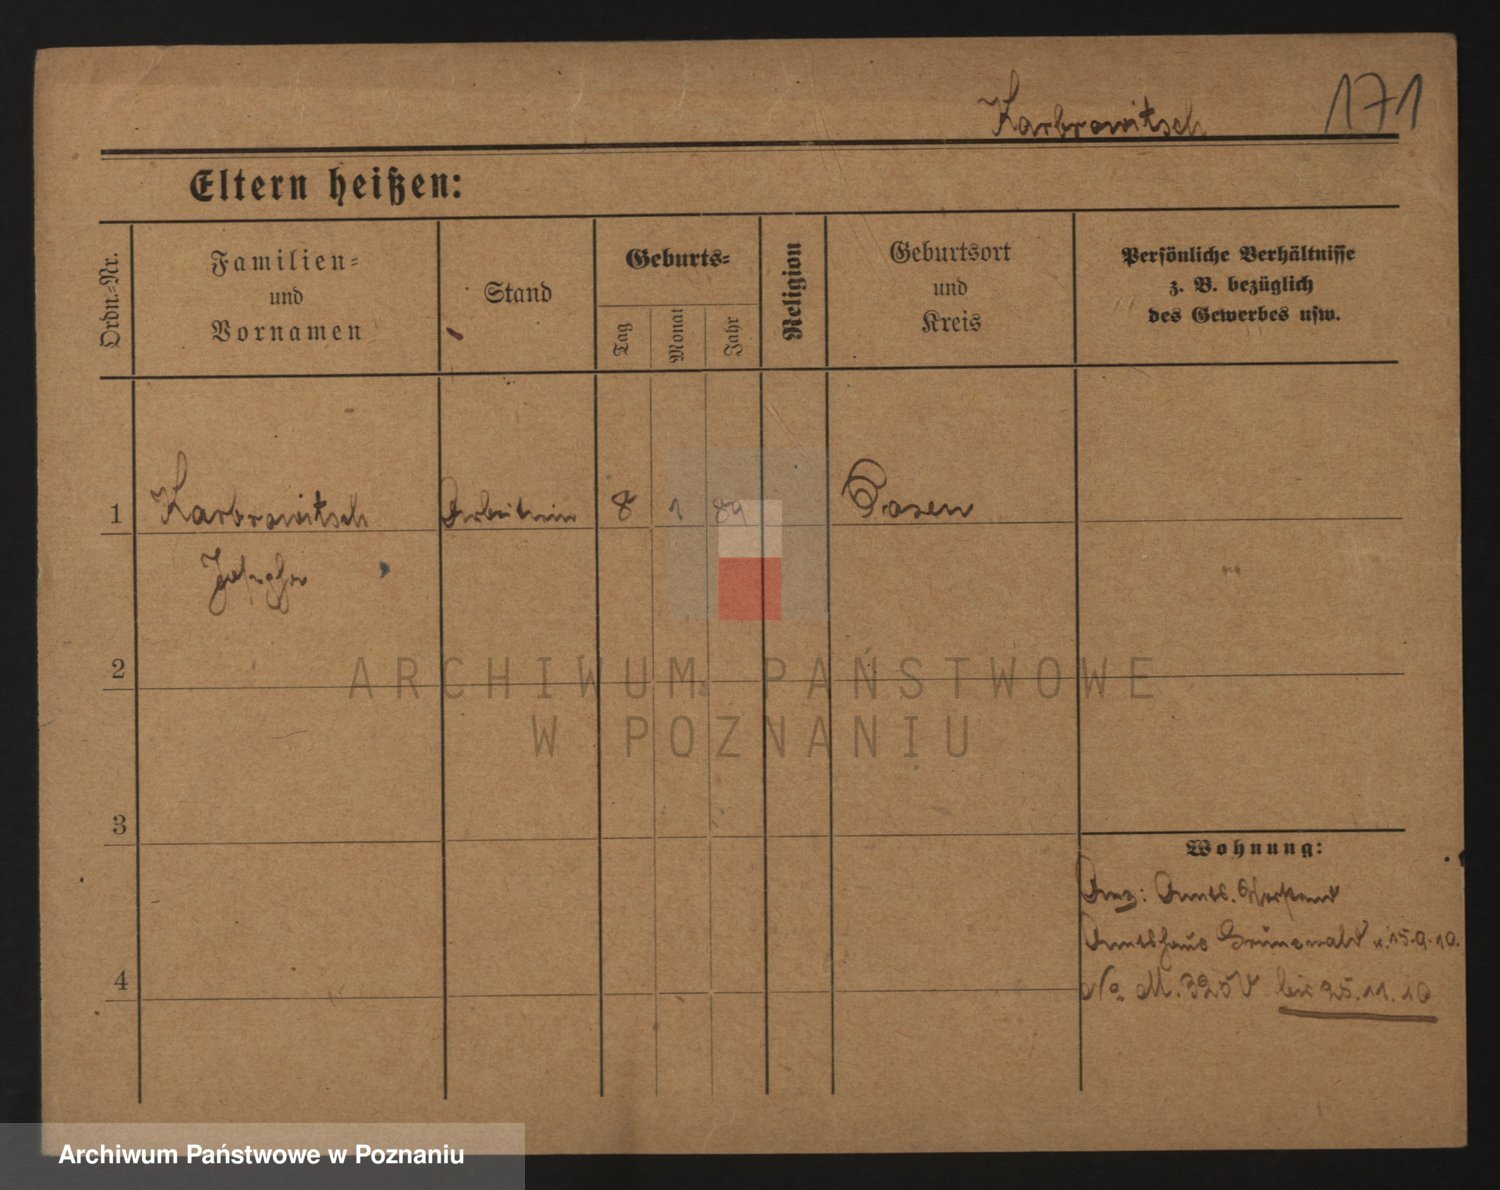 Karbrowitsch 171
Eltern heißen:
Ordn.-Nr.
Familien-
und
Vornamen
Stand
Geburts-
Tag
Monat
Jahr
Religion
Geburtsort
und
Kreis
Persönliche Verhältnisse
z. B. bezüglich
des Gewerbes usw.
1 Karbrowitsch Arbeiterin 8 1 84 Posen
Josepha
2
3
4
Wohnung:
Anz: Amts. Vorstand
Amtshaus Grunewald v. 15.9.10.
No M. 325 V bis 25.11.10
ARCHIWUM PAŃSTWOWE
W POZNANIU
Archiwum Państwowe w Poznaniu